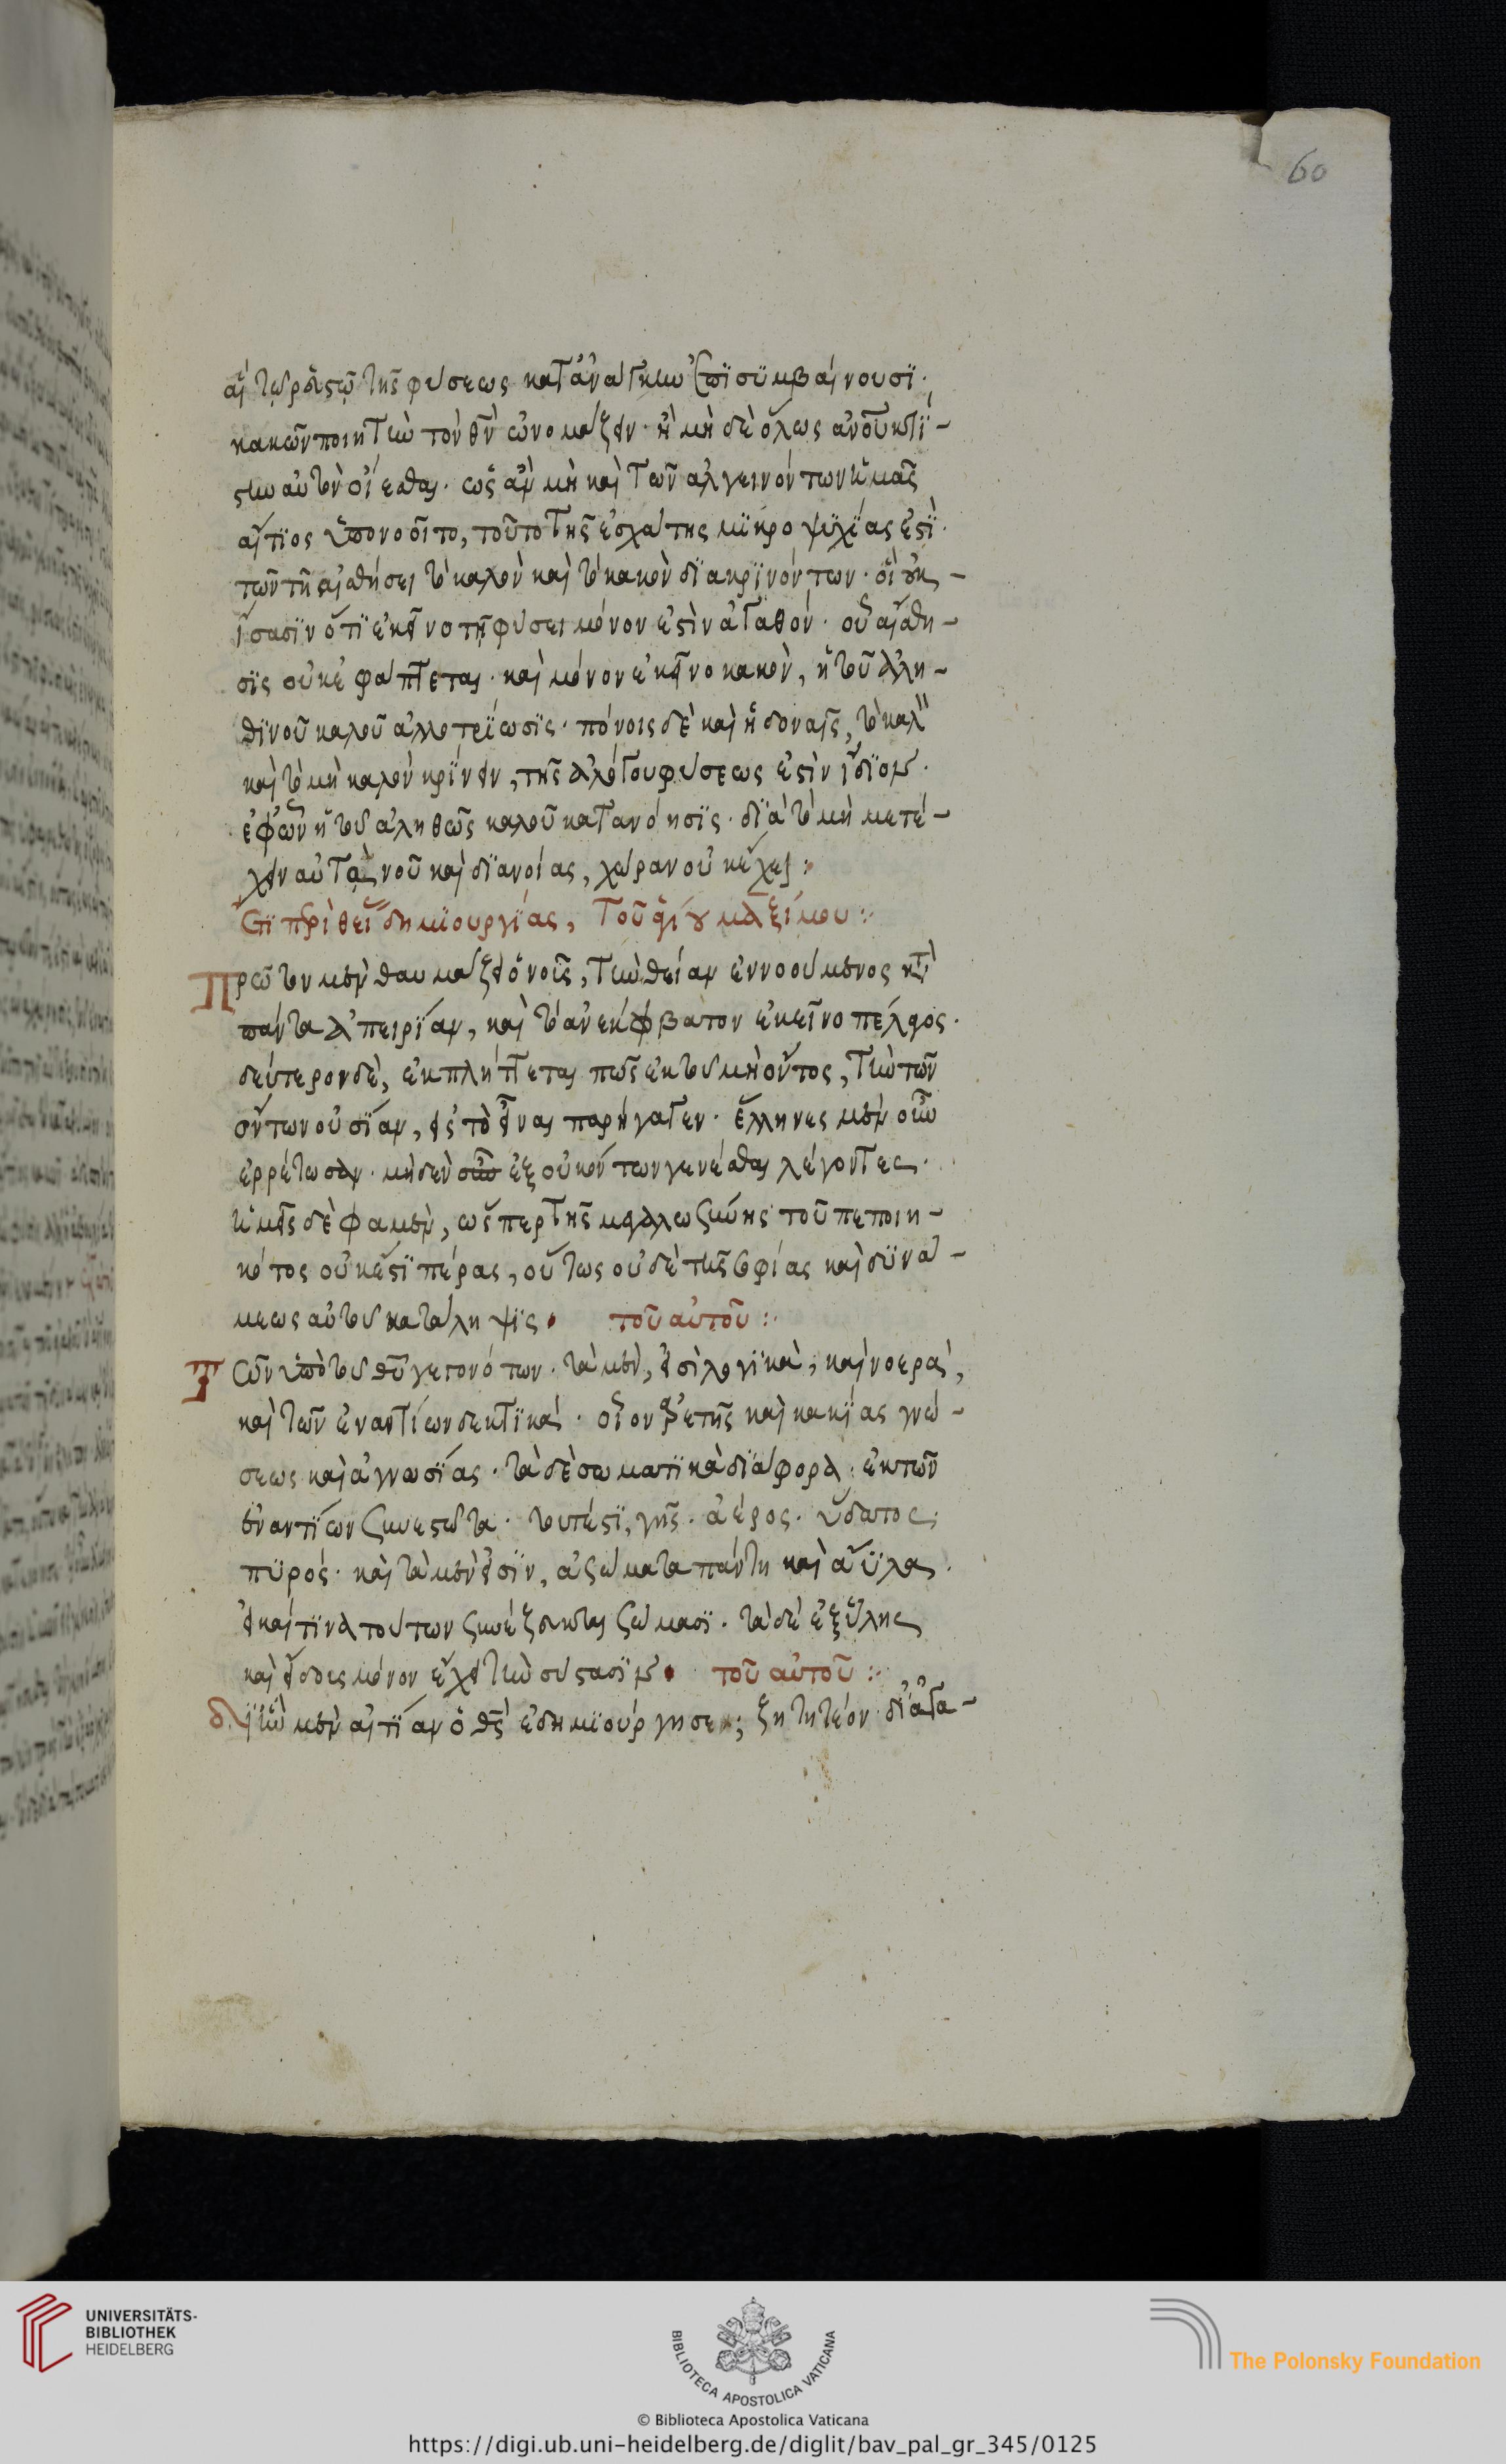 60
αἳ τῷ ῥοώδει τῆς φύσεως κατ' ἀνάγκην ἐπισυμβαίνουσι·
κακῶν ποιητὴν τὸν θν̄ ὠνόμαζεν· ἢ μὴ δὲ ὅλως ἂν οὐ κτί-
στην αὐτὸν οἴεσθαι· ὡς ἂν μὴ καὶ τῶν ἀλγεινόντων ἡμᾶς
αἴτιος ὑπονοοῖτο, τοῦτο τῆς ἐσχάτης μικροψυχίας ἐστὶ·
τῶν τῇ αἰσθήσει τὸ καλὸν καὶ τὸ κακὸν διακρινόντων· οἳ οὐκ
ἴσασιν ὅτι ἐκεῖνο τῇ φύσει μόνον ἐστὶν ἀγαθόν· οὗ αἴσθη-
σις οὐκ ἐφάπτεται· καὶ μόνον ἐκεῖνο κακὸν, ἡ τοῦ ἀλη-
θινοῦ καλοῦ ἀλλοτρίωσις· πόνοις δὲ καὶ ἡδοναῖς, τὸ καλὸν
καὶ τὸ μὴ καλὸν κρίνειν, τῆς ἀλόγου φύσεως ἐστὶν ἴδιον·
ἐφ' ὧν ἡ τοῦ ἀληθῶς καλοῦ κατανόησις· διὰ τὸ μὴ μετέ-
χειν αὐτὰ νοῦ καὶ διανοίας, χώραν οὐκ ἔχει:
Ἔτι περὶ θείας δημιουργίας, τοῦ ἁγίου μαξίμου:
Πρῶτον μὲν θαυμάζει ὁ νοῦς, τὴν θείαν ἐννοούμενος κατὰ
πάντα ἀπειρίαν, καὶ τὸ ἀνέκβατον ἐκεῖνο πέλαγος·
δεύτερον δὲ, ἐκπλήττεται πῶς ἐκ τοῦ μὴ ὄντος, τὴν τῶν
ὄντων οὐσίαν, εἰς τὸ εἶναι παρήγαγεν· ἕλληνες μὲν οὖν
ἐρρέτωσαν· μηδὲν ἐξ οὐκ ὄντων γενέσθαι λέγοντες·
ἡμεῖς δὲ φαμὲν, ὥσπερ τῆς μεγαλωσύνης τοῦ πεποιη-
κότος οὐκ ἔστι πέρας, οὕτως οὐδὲ τῆς σοφίας καὶ δυνά-
μεως αὐτοῦ κατάληψις· τοῦ αὐτοῦ:
Τῶν ὑπὸ τοῦ θῦ γεγονότων· τὰ μὲν, εἰσὶ λογικὰ, καὶ νοερά,
καὶ τῶν ἐναντίων δεκτικά· οἷον ἀρετῆς καὶ κακίας γνώ-
σεως καὶ ἀγνωσίας· τὰ δὲ σωματικὰ διάφορα· ἐκ τῶν
ἐναντίων συνεστῶτα· τουτέστι, γῆς· ἀέρος· ὕδατος·
πυρός· καὶ τὰ μὲν εἰσὶν, ἀσώματα πάντη καὶ ἄϋλα·
εἰ καί τινα τούτων συνέζευκται σώμασι· τὰ δὲ ἐξ ὕλης
καὶ εἴδους μόνον ἔχει τὴν σύστασιν· τοῦ αὐτοῦ:
Δι' ἣν μὲν αἰτίαν ὁ θς̄ ἐδημιούργησεν; ζητητέον· δι' ἀγα-
UNIVERSITÄTS-
BIBLIOTHEK
HEIDELBERG
BIBLIOTECA APOSTOLICA VATICANA
The Polonsky Foundation
© Biblioteca Apostolica Vaticana
https://digi.ub.uni-heidelberg.de/diglit/bav_pal_gr_345/0125